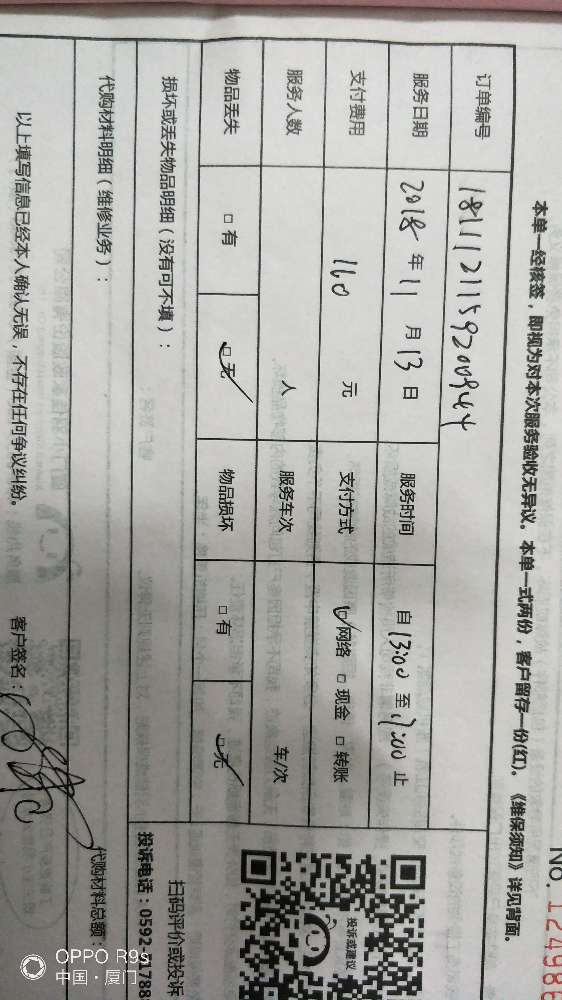 No. 124986
本单一经核签，即视为对本次服务验收无异议。本单一式两份，客户留存一份(红)。《维保须知》详见背面。
订单编号 1811121159200944
服务日期 2018 年 11 月 13 日 服务时间 自 13:00 至 17:00 止
支付费用 160 元 支付方式 ☑网络 □现金 □转账
服务人数 人 服务车次 车/次
物品丢失 □有 ☑无 物品损坏 □有 ☑无
损坏或丢失物品明细（没有可不填）：
投诉或建议
扫码评价或投诉
投诉电话：0592-51788
代购材料明细（维修业务）：
代购材料总额：
以上填写信息已经本人确认无误，不存在任何争议纠纷。 客户签名：
OPPO R9s
中国·厦门